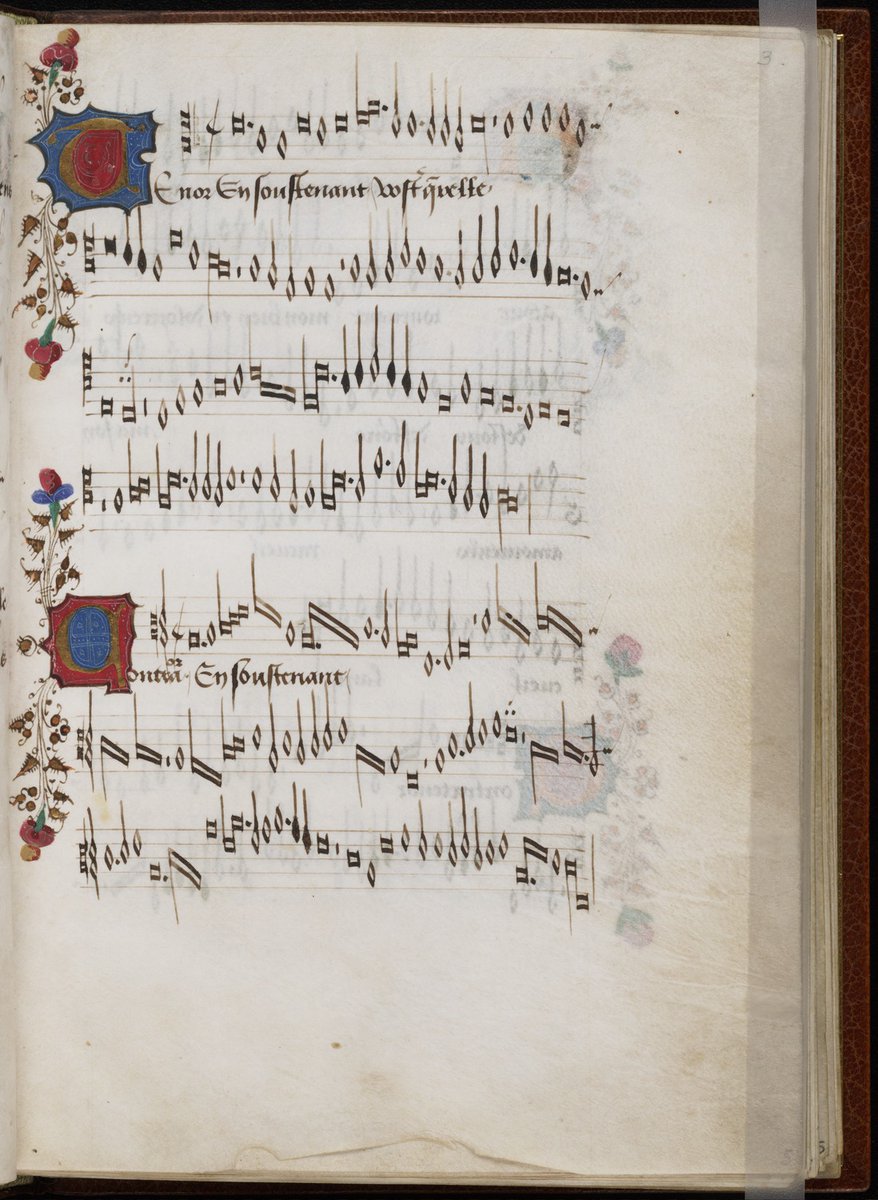 3.
Tenor En soustenant vostr̃ q̃relle
Contraor En soustenant